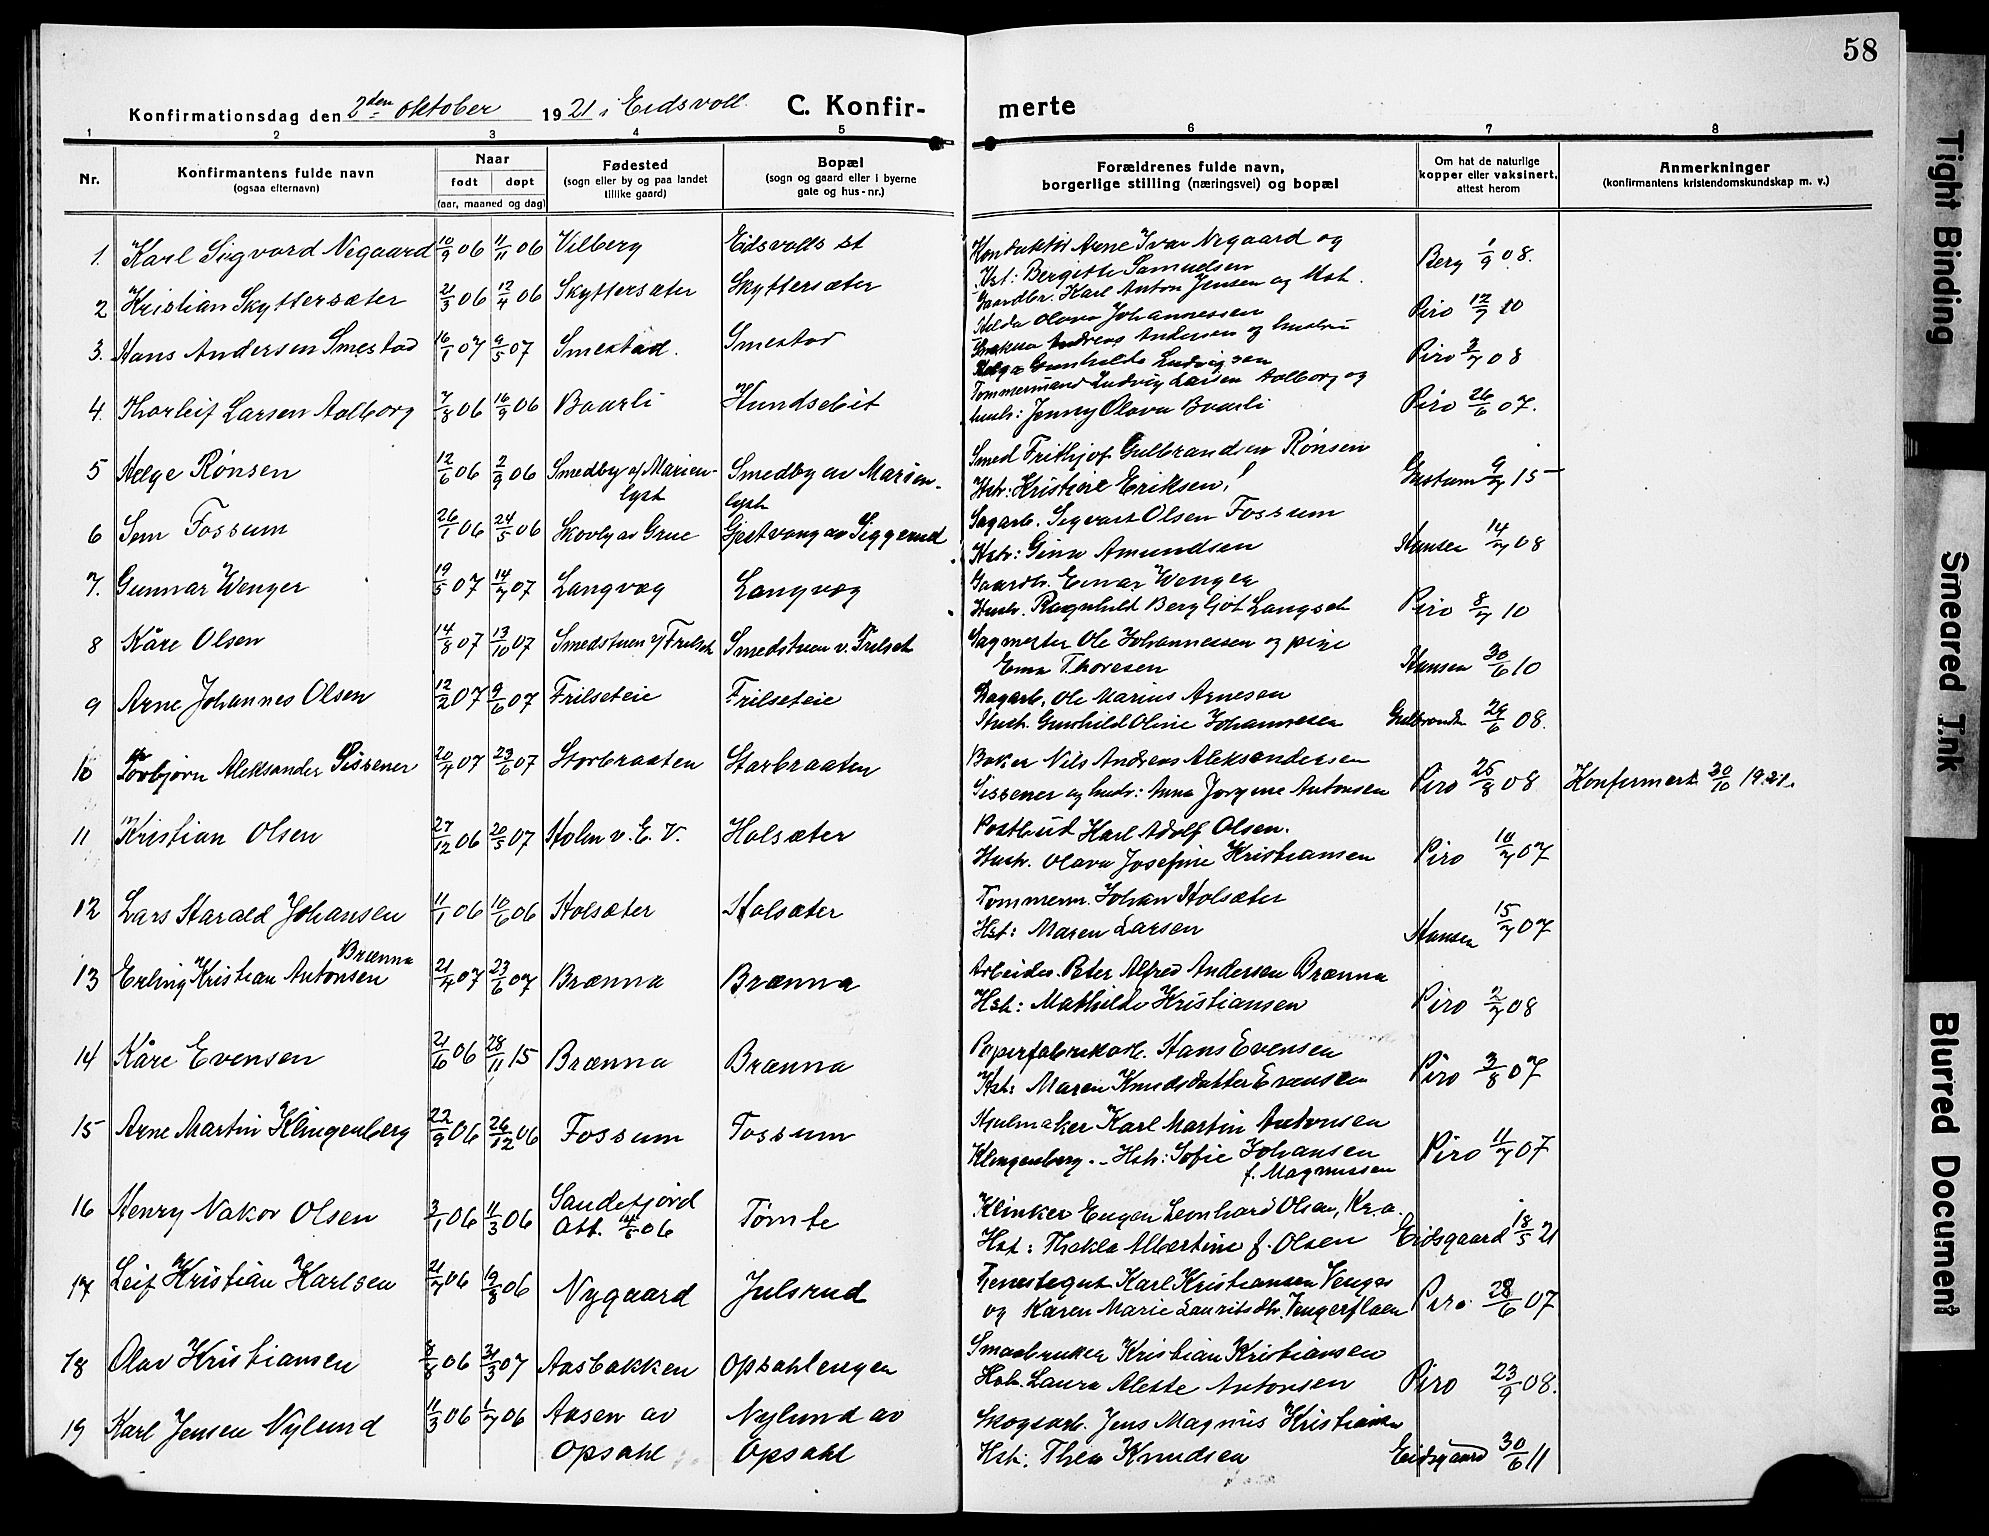 58
Konfirmationsdag den 2den oktober 1921 i Eidsvoll. C. Konfirmerte
1 2 3 4 5 6 7 8
Nr. Konfirmantens fulde navn (ogsaa efternavn) Naar født døpt (aar, maaned og dag) Fødested (sogn eller by og paa landet tillike gaard) Bopæl (sogn og gaard eller i byerne gate og hus-nr.) Forældrenes fulde navn, borgerlige stilling (næringsvei) og bopæl Om hat de naturlige kopper eller vaksinert, attest herom Anmerkninger (konfirmantens kristendomskundskap m. v.)
1. Karl Sigvard Negaard 10/9 06 11/11 06 Vilberg Eidsvolls st Konduktør Arne Ivar Negaard og Berg 1/9 08.
Hst: Bergitte Samuelsen
2 Kristian Skyttersæter 21/3 06 12/4 06 Skyttersæter Skyttersæter Gaardbr. Karl Anton Jensen og Hst. Piro 12/7 10
Hilda Olava Johannessen
3. Hans Andersen Smestad 16/1 07 9/5 07 Smestad. Smestad Andreas Andersen og hustru Piro 3/7 08
Gunhilda Ludvigsen
4. Thorleif Larsen Aalborg 7/8 06 16/9 06 Baarli Hundsebit Tømmermand Ludvig Larsen Aalborg og
hustr: Jenny Olava Baarli Piro 26/6 07.
5 Helge Rønsen 12/6 06 2/9 06 Smedby af Marien- Smedby av Marien- Smed Frithjof Gulbrandsen Rønsen
lyst lyst Hstr: Kristine Eriksen, 9/7 15
6 Sem Fossum 26/1 06 24/5 06 Skovly av Grue Gjestvang av Siggerud Sagarb. Sigvart Olsen Fossum
Hstr: Gina Amundsen Hansen 14/7 08
7. Gunnar Wenger 19/5 07 14/7 07 Langvæg Langvæg Gaardb. Einar Wenger
Hustr. Ragnhild Bergljot Langset Piro 8/7 10
8 Kåre Olsen 14/8 07 13/10 07 Smedstuen v/ Frilset Smedstuen v. Frilset Sagmester Ole Johannessen og pige
Ema Thoresen Hansen 30/6 10
9 Arne Johannes Olsen 12/2 07 9/6 07 Frilseteie Frilseteie Dagarb. Ole Marius Arnesen
Hustr. Gunhild Oline Johannesen Gulbrandsen 29/6 08.
10 Torbjørn Aleksander Sissener 20/4 07 23/6 07 Storbraaten Storbraaten Baker Nils Andreas Aleksandersen
Sissener og hustr: Anna Jørgine Antonsen Piro 25/8 08 Konfirmert 30/10 1921.
11 Kristian Olsen 27/12 06 20/5 07 Holm v. E. V. Holsæter Postbud Karl Adolf Olsen.
Hustr. Olava Josefine Kristiansen Piro 10/7 07
12 Lars Harald Johansen 11/1 06 10/6 06 Holsæter Holsæter Tømmerm. Johan Holsæter
Hst: Maren Larsen Hansen 15/7 07
13 Erling Kristian Antonsen Brænna 21/4 07 23/6 07 Brænna Brænna Arbeider Peter Alfred Andersen Brænna
Hst: Mathilde Kristiansen Piro 2/7 08
14 Kåre Evensen 21/6 06 28/11 15 Brænna Brænna Papirfabrikarb. Hans Evensen
Hst: Maren Knudsdatter Evensen Piro 3/8 07
15 Arne Martin Klingenberg 22/9 06 26/12 06 Fossum Fossum Hjulmaker Karl Martin Antonsen
Klingenberg. - Hst: Sofie Johansen Piro 11/7 07
f. Magnussen
16 Henry Nakor Olsen 3/1 06 11/3 06 Sandefjord Tømte Klinker Eugen Leonhard Olsen, Kr.a.
Att. 06 Hst: Thekla Albertine f. Olsen Eidsgaard 18/5 21
17 Leif Kristian Karlsen 21/7 06 19/8 06 Nygaard Julsrud Tjenestegut Karl Kristiansen Venger
og Karen Marie Lauritsdtr. Vengerflaen Piro 28/6 07
18 Olav Kristiansen 06 31/3 07 Aasbakken Opsahlengen Smaabruker Kristian Kristiansen
Hstr. Laura Alette Antonsen Piro 23/9 08.
19 Karl Jensen Nylund 11/3 06 1/7 06 Aasen av Nylund av Skogsarb. Jens Magnus Kristiansen
Opsahl Opsahl Hst: Thea Knudsen Eidsgaard 30/6 11
Tight Binding
Smeared Ink
Blurred Document